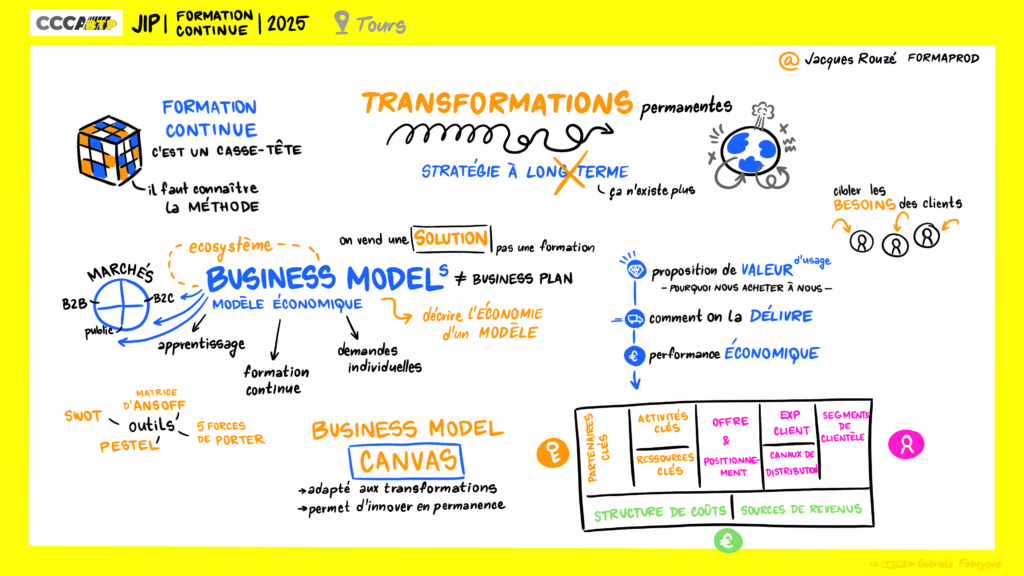 CCCA BTP
JIP | FORMATION CONTINUE | 2025
Tours
@ Jacques Rouzé FORMAPROD
FORMATION
CONTINUE
C'EST UN CASSE-TÊTE
il faut connaître
la MÉTHODE
TRANSFORMATIONS permanentes
STRATÉGIE À LONG TERME
ça n'existe plus
cibler les
BESOINS des clients
ecosystème
on vend une SOLUTION pas une formation
MARCHÉS
B2B
B2C
public
BUSINESS MODELS ≠ BUSINESS PLAN
MODÈLE ÉCONOMIQUE
décrire l'ÉCONOMIE
d'un MODÈLE
apprentissage
formation
continue
demandes
individuelles
proposition de VALEUR d'usage
- POURQUOI NOUS ACHETER À NOUS -
comment on la DÉLIVRE
€ performance ÉCONOMIQUE
MATRICE
D'ANSOFF
SWOT
outils
PESTEL
5 FORCES
DE PORTER
BUSINESS MODEL
CANVAS
→ adapté aux transformations
→ permet d'innover en permanence
PARTENAIRES
CLÉS
ACTIVITÉS
CLÉS
RESSOURCES
CLÉS
OFFRE
&
POSITIONNE-
MENT
EXP
CLIENT
CANAUX DE
DISTRIBUTION
SEGMENTS
DE
CLIENTÈLE
STRUCTURE DE COÛTS
SOURCES DE REVENUS
€